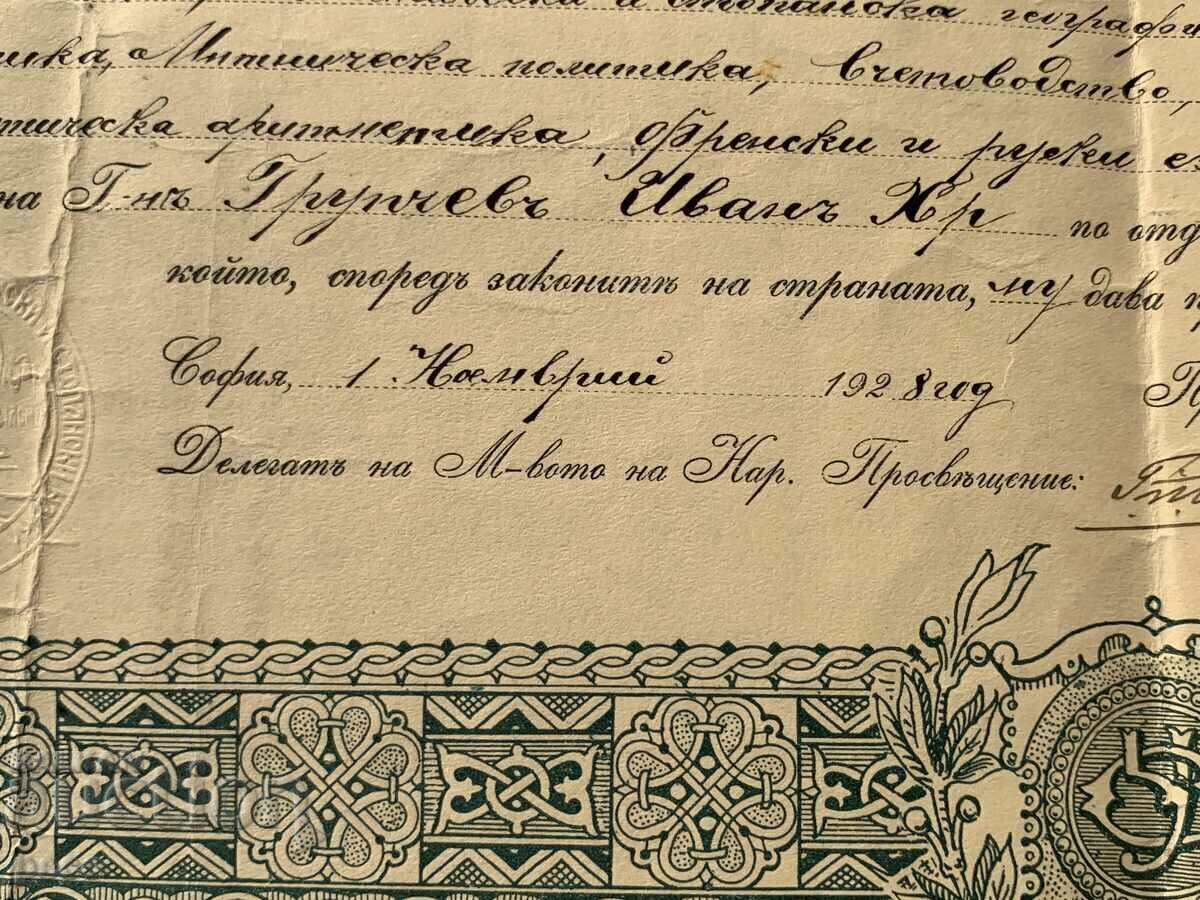 и стопанска географи
Митническа политика, Счетоводство,
аритметика, Френски и руски е
на Г-нъ Групчевъ Иванъ Хр по отд
който, споредъ законитѣ на страната, му дава п
София, 1 Ноемврий 1928 год П
Делегатъ на М-вото на Нар. Просвѣщение: